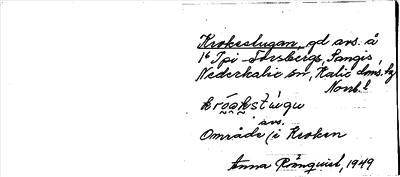 Krokestugan, gd avs. å
1⁶ Tpi-Forsbergs, Sangis,
Nederkalix sn, Kalix dms. hg
Norrb. l
avs.
Område (i Kroken
Anna Rönquist, 1949